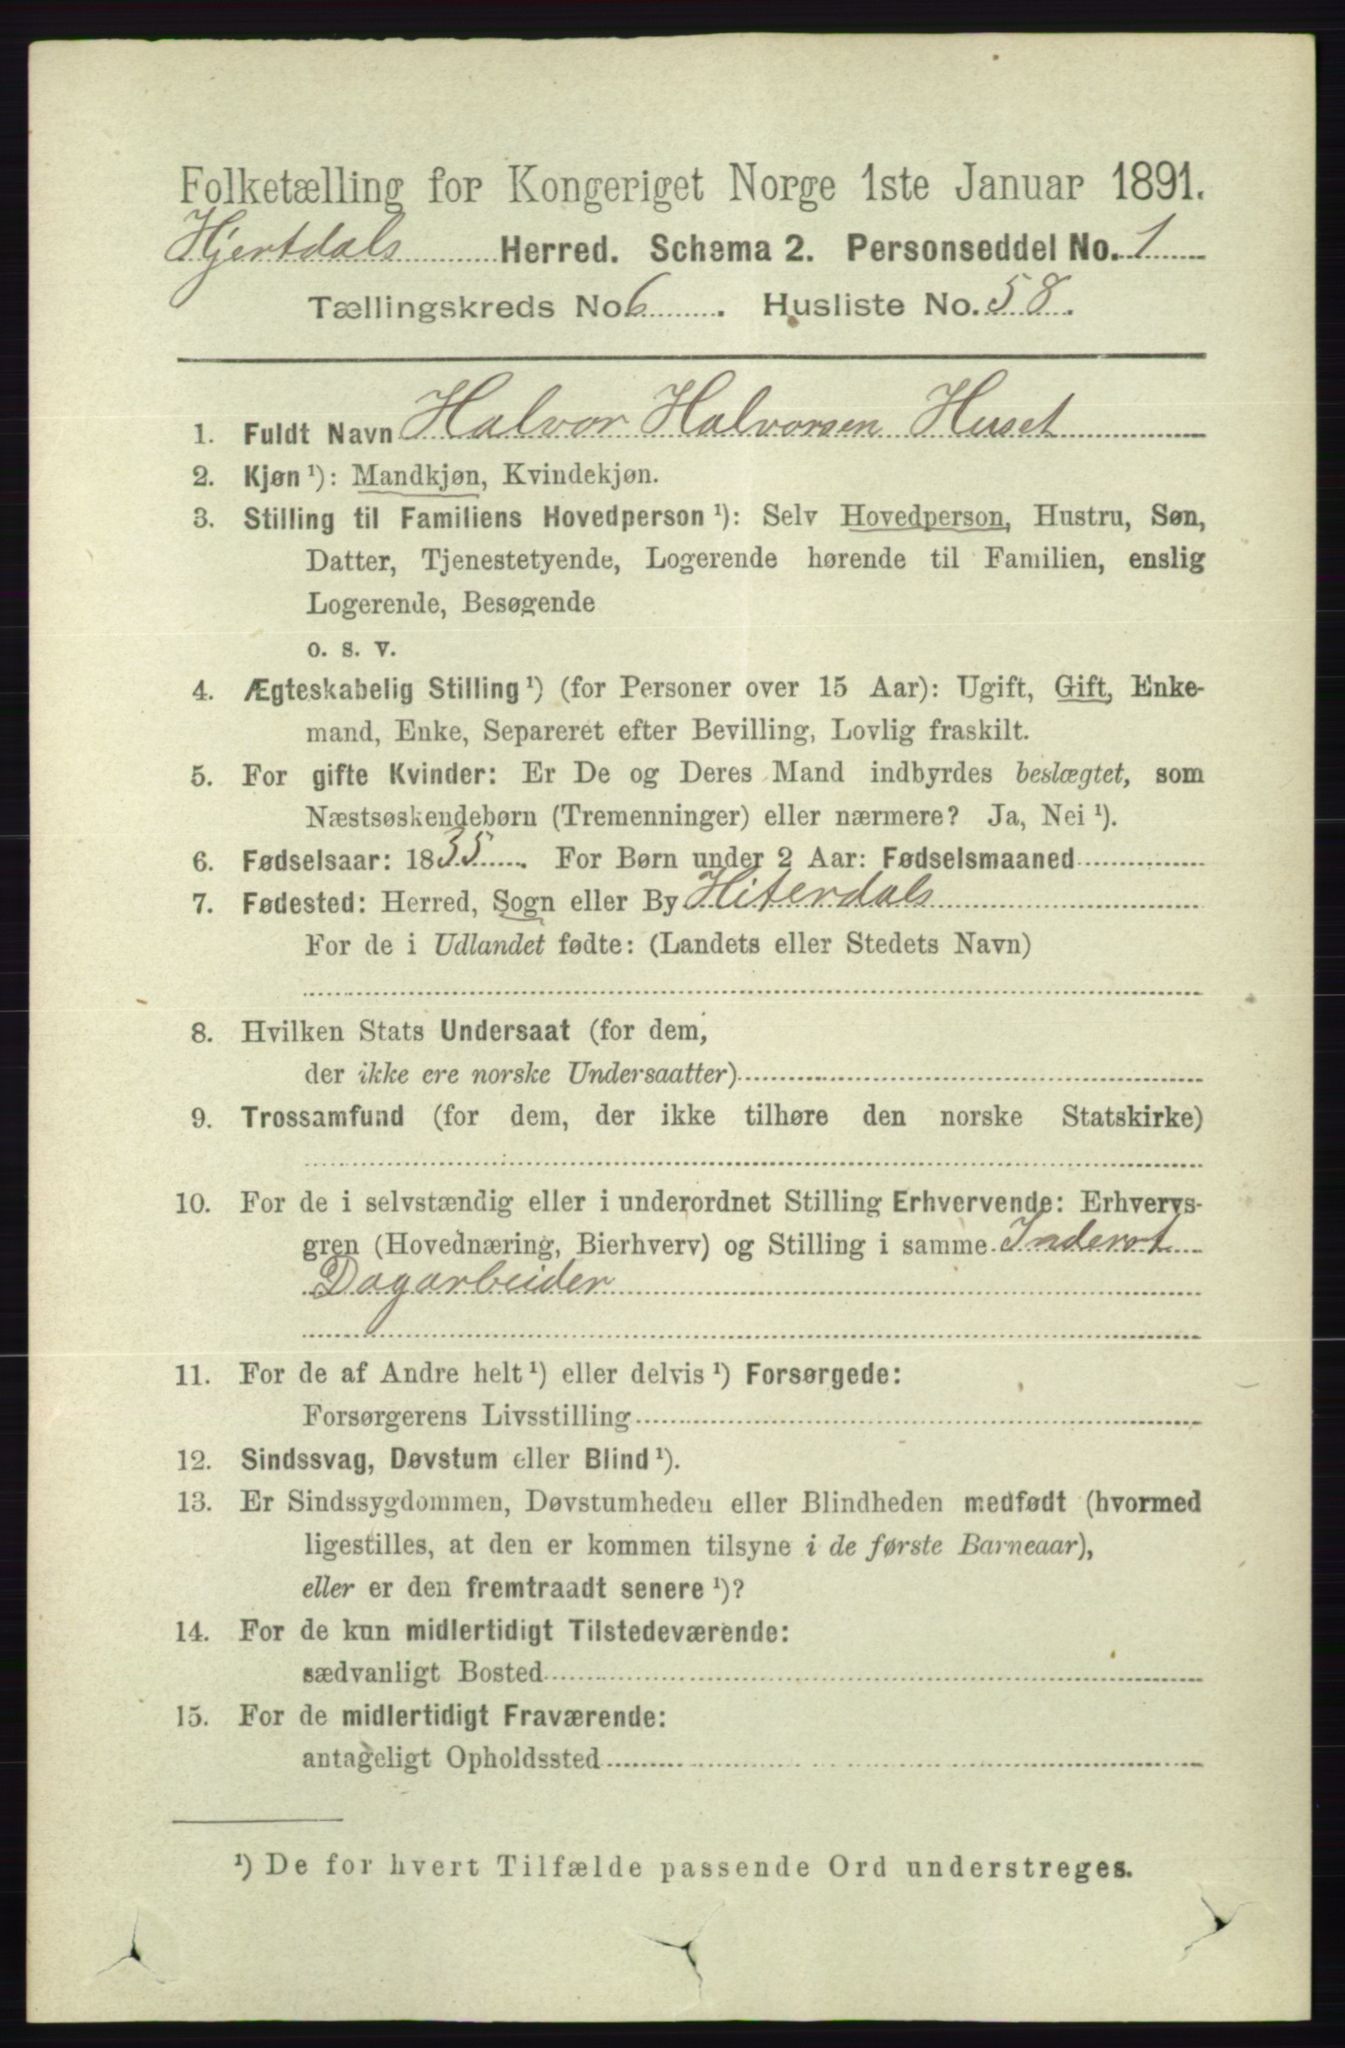 Folketælling for Kongeriget Norge 1ste Januar 1891.
Hjertdals Herred. Schema 2. Personseddel No. 1
Tællingskreds No. 6. Husliste No. 58.
1. Fuldt Navn Halvor Halvorsen Huset
2. Kjøn ¹): Mandkjøn, Kvindekjøn.
3. Stilling til Familiens Hovedperson ¹): Selv Hovedperson, Hustru, Søn,
Datter, Tjenestetyende, Logerende hørende til Familien, enslig
Logerende, Besøgende
o. s. v.
4. Ægteskabelig Stilling ¹) (for Personer over 15 Aar): Ugift, Gift, Enke-
mand, Enke, Separeret efter Bevilling, Lovlig fraskilt.
5. For gifte Kvinder: Er De og Deres Mand indbyrdes beslægtet, som
Næstsøskendebørn (Tremenninger) eller nærmere? Ja, Nei ¹).
6. Fødselsaar: 1835. For Børn under 2 Aar: Fødselsmaaned
7. Fødested: Herred, Sogn eller By Hiterdals
For de i Udlandet fødte: (Landets eller Stedets Navn)
8. Hvilken Stats Undersaat (for dem,
der ikke ere norske Undersaatter)
9. Trossamfund (for dem, der ikke tilhøre den norske Statskirke)
10. For de i selvstændig eller i underordnet Stilling Erhvervende: Erhvervs-
gren (Hovednæring, Bierhverv) og Stilling i samme Inderst
Dagarbeider
11. For de af Andre helt ¹) eller delvis ¹) Forsørgede:
Forsørgerens Livsstilling
12. Sindssvag, Døvstum eller Blind ¹).
13. Er Sindssygdommen, Døvstumheden eller Blindheden medfødt (hvormed
ligestilles, at den er kommen tilsyne i de første Barneaar),
eller er den fremtraadt senere ¹)?
14. For de kun midlertidigt Tilstedeværende:
sædvanligt Bosted
15. For de midlertidigt Fraværende:
antageligt Opholdssted
¹) De for hvert Tilfælde passende Ord understreges.